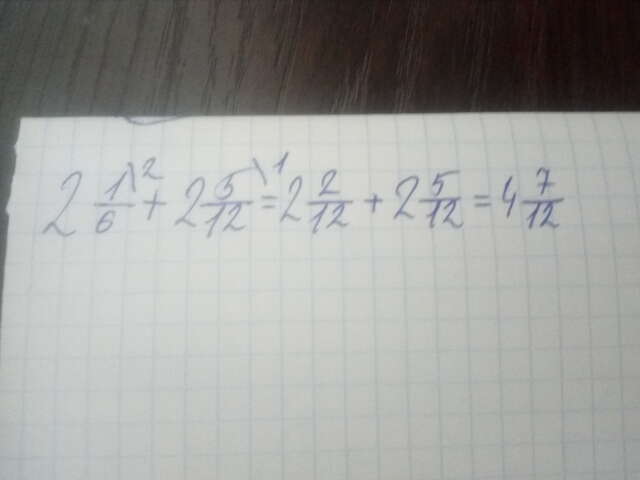 2 1/6 \2 + 2 5/12 \1 = 2 2/12 + 2 5/12 = 4 7/12